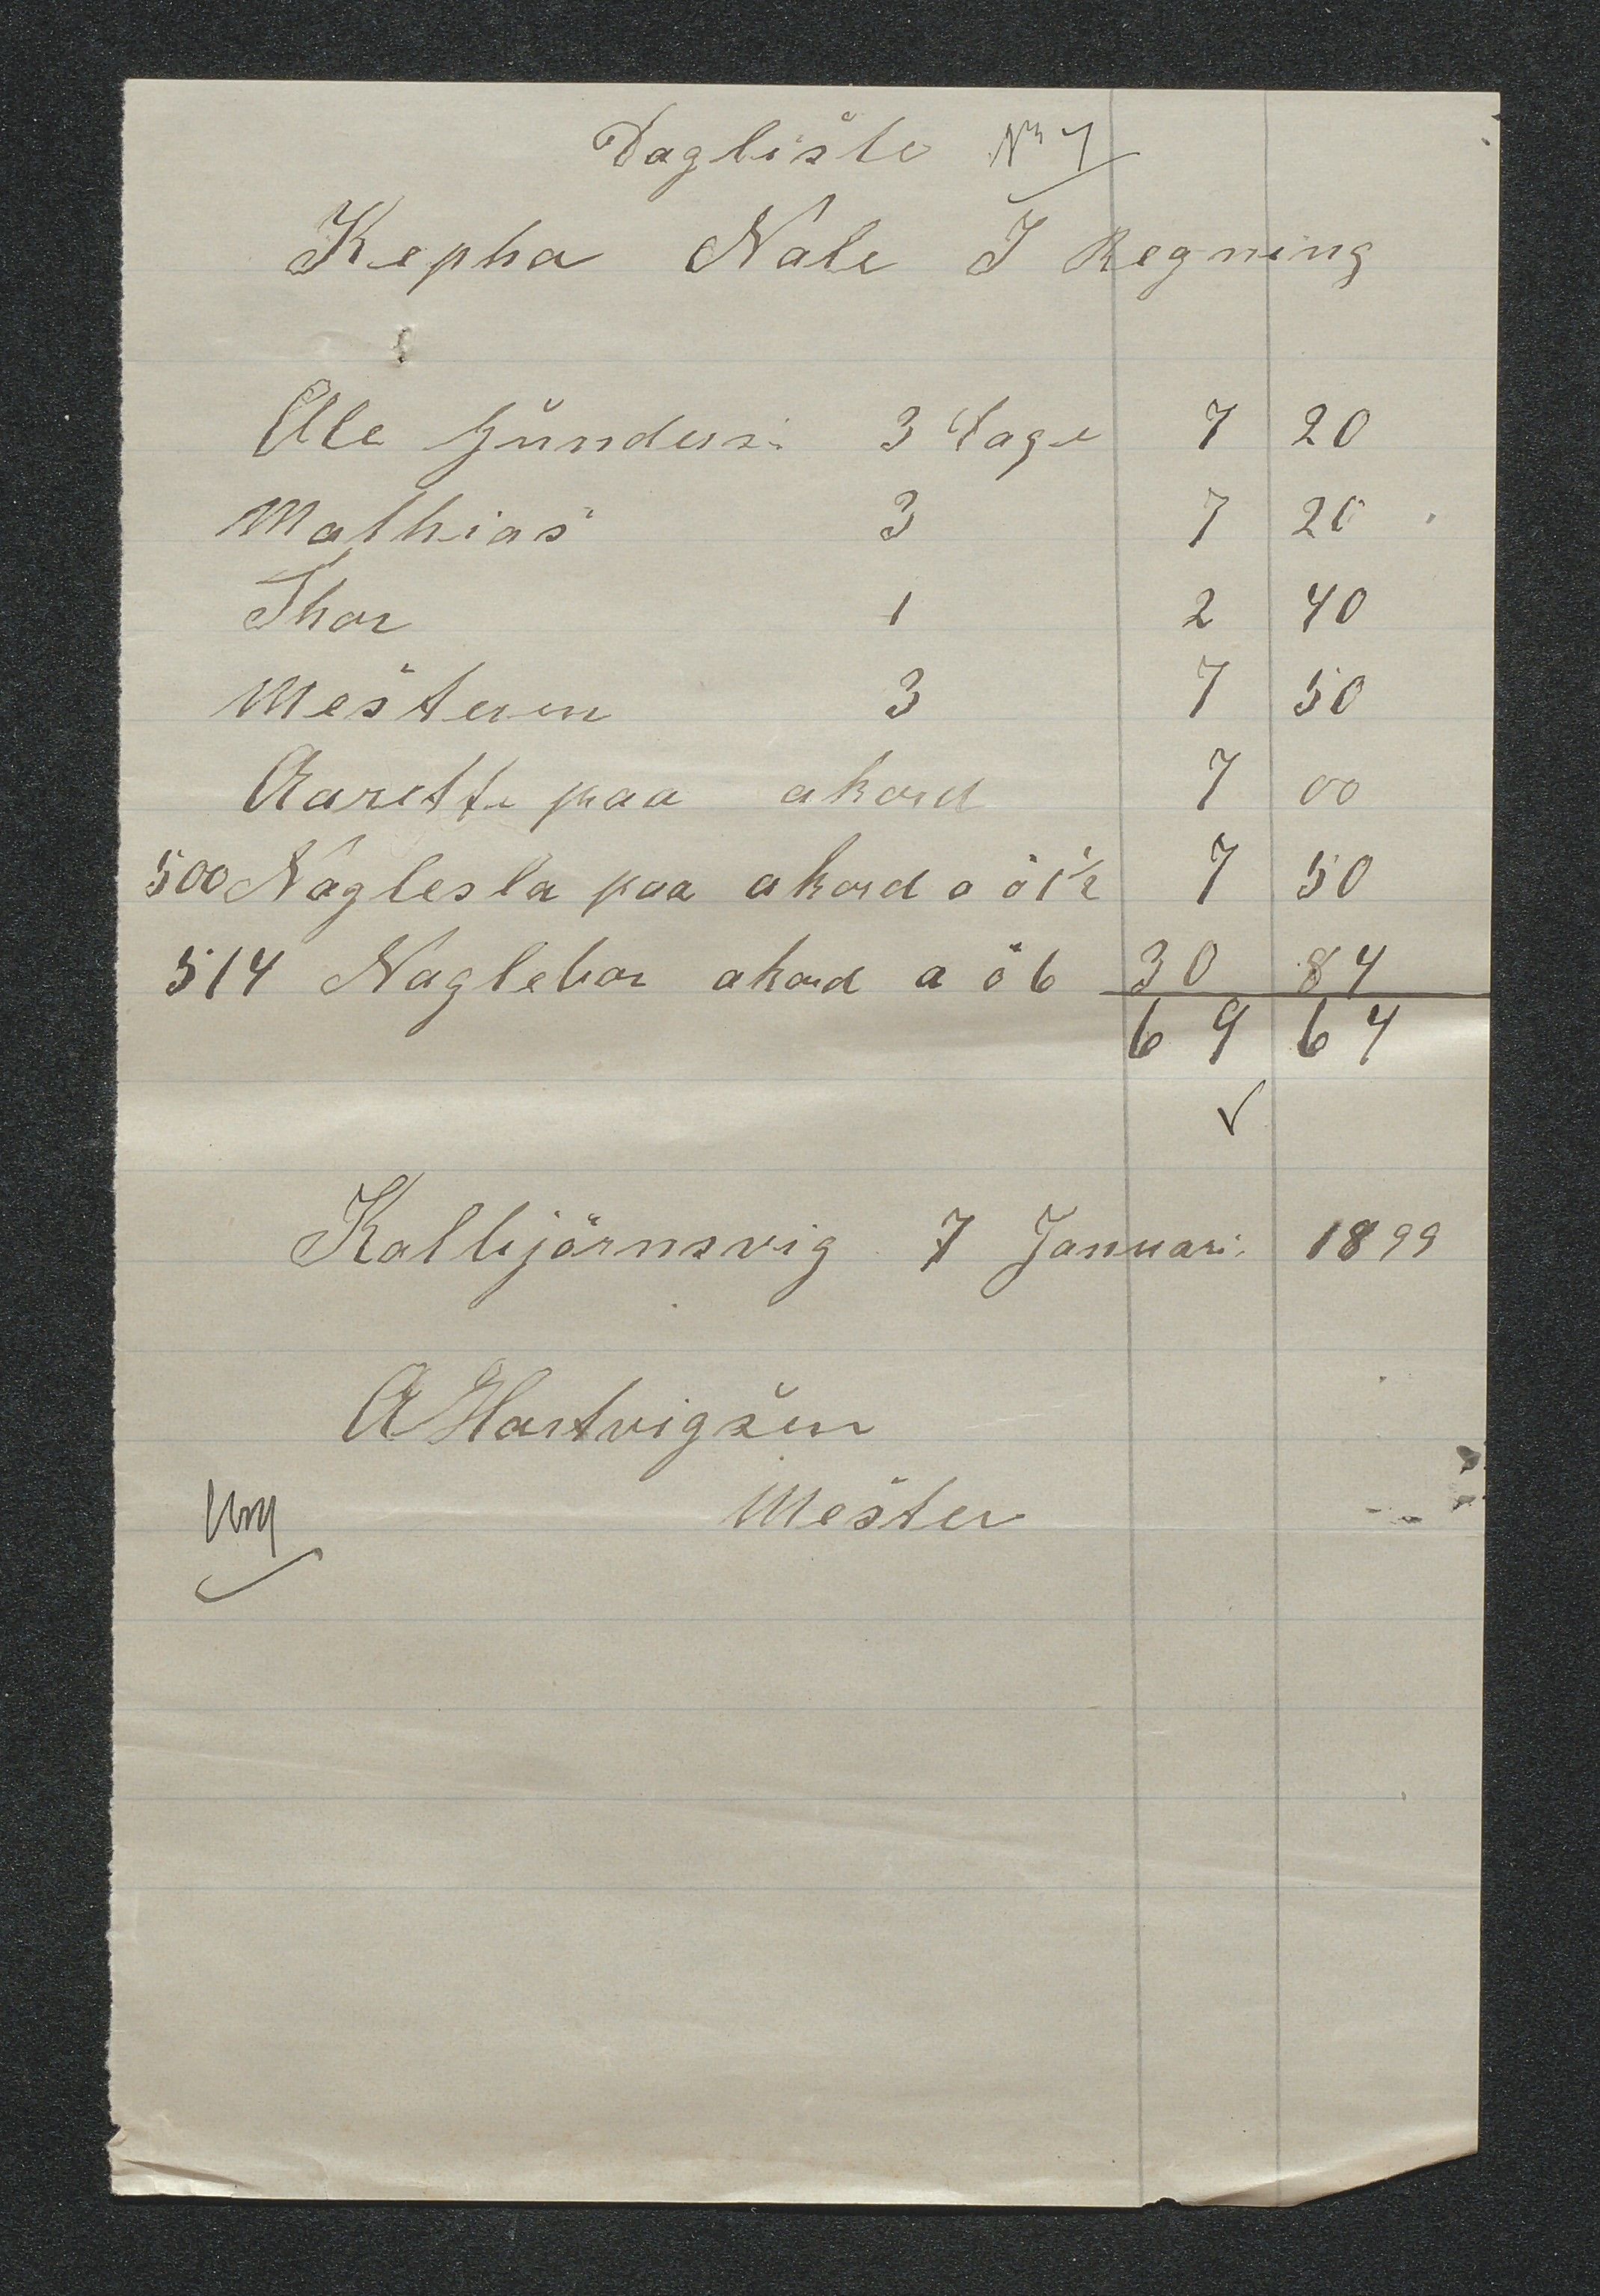 Dagliste No 7
Kepha Nale I Regning
Ole Gunders. 3 Dage 7 20
Mathias 3 7 20
Thor 1 2 40
Mesteren 3 7 50
Aarette paa akord 7 00
500 Naglesla paa akord a ö 1½ 7 50
514 Naglebor akord a ö 6 30 84
69 64
✓
Kolbjörnsvig 7 Januari. 1899
A Hartvigsen
Mester